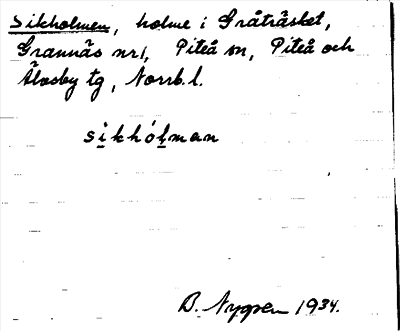 Sikholmen, holme i Gråträsket,
Grannäs nr 1, Piteå sn, Piteå och
Älvsby tg, Norrb. l.
sikhólman
B. Nygren 1934.